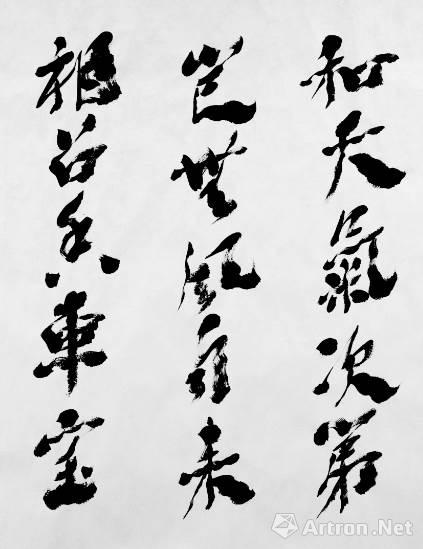 和天氣次第
豈無風雨來
相召香車宝
Artron.Net